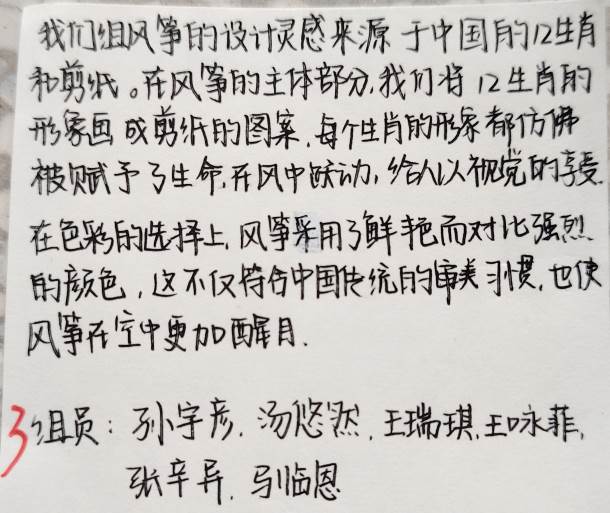 我们组风筝的设计灵感来源于中国的12生肖
和剪纸。在风筝的主体部分,我们将12生肖的
形象画成剪纸的图案,每个生肖的形象都仿佛
被赋予了生命,在风中跃动,给人以视觉的享受.
在色彩的选择上,风筝采用了鲜艳而对比强烈
的颜色,这不仅符合中国传统的审美习惯,也使
风筝在空中更加醒目.
3组员:孙宇彦.汤悠然,王瑞琪,王咏菲,
张辛异.马临恩